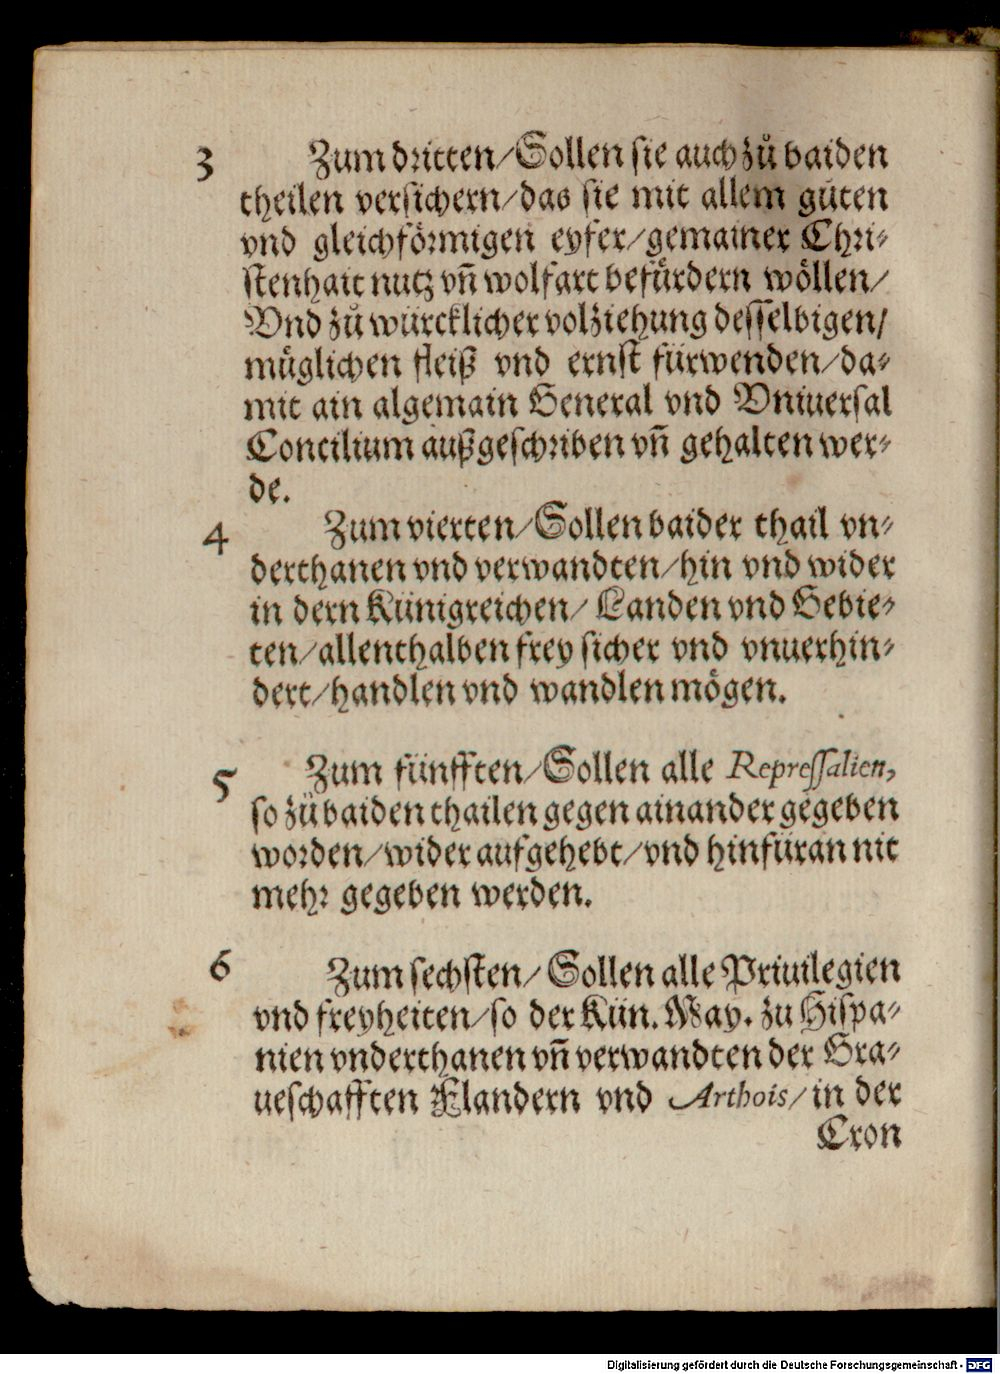 3 Zum dritten/Sollen sie auch zů baiden
theilen versichern/das sie mit allem gůten
vnd gleichförmigen eyfer/gemainer Chri⸗
stenhait nutz vñ wolfart befürdern wöllen/
Vnd zů würcklicher volziehung desselbigen/
müglichen fleiß vnd ernst fürwenden/da⸗
mit ain algemain General vnd Vniuersal
Concilium außgeschriben vñ gehalten wer⸗
de.
4 Zum vierten/Sollen baider thail vn⸗
derthanen vnd verwandten/hin vnd wider
in dern Künigreichen/ Landen vnd Gebie⸗
ten/allenthalben frey sicher vnd vnuerhin⸗
dert/handlen vnd wandlen mögen.
5 Zum fünfften/Sollen alle Repressalien,
so zů baiden thailen gegen ainander gegeben
worden/wider aufgehebt/vnd hinfüran nit
mehr gegeben werden.
6 Zum sechsten/ Sollen alle Priuilegien
vnd freyheiten/so der Kün. May. zu Hispa⸗
nien vnderthanen vñ verwandten der Gra⸗
ueschafften Flandern vnd Arthois/in der
Cron
Digitalisierung gefördert durch die Deutsche Forschungsgemeinschaft - DFG